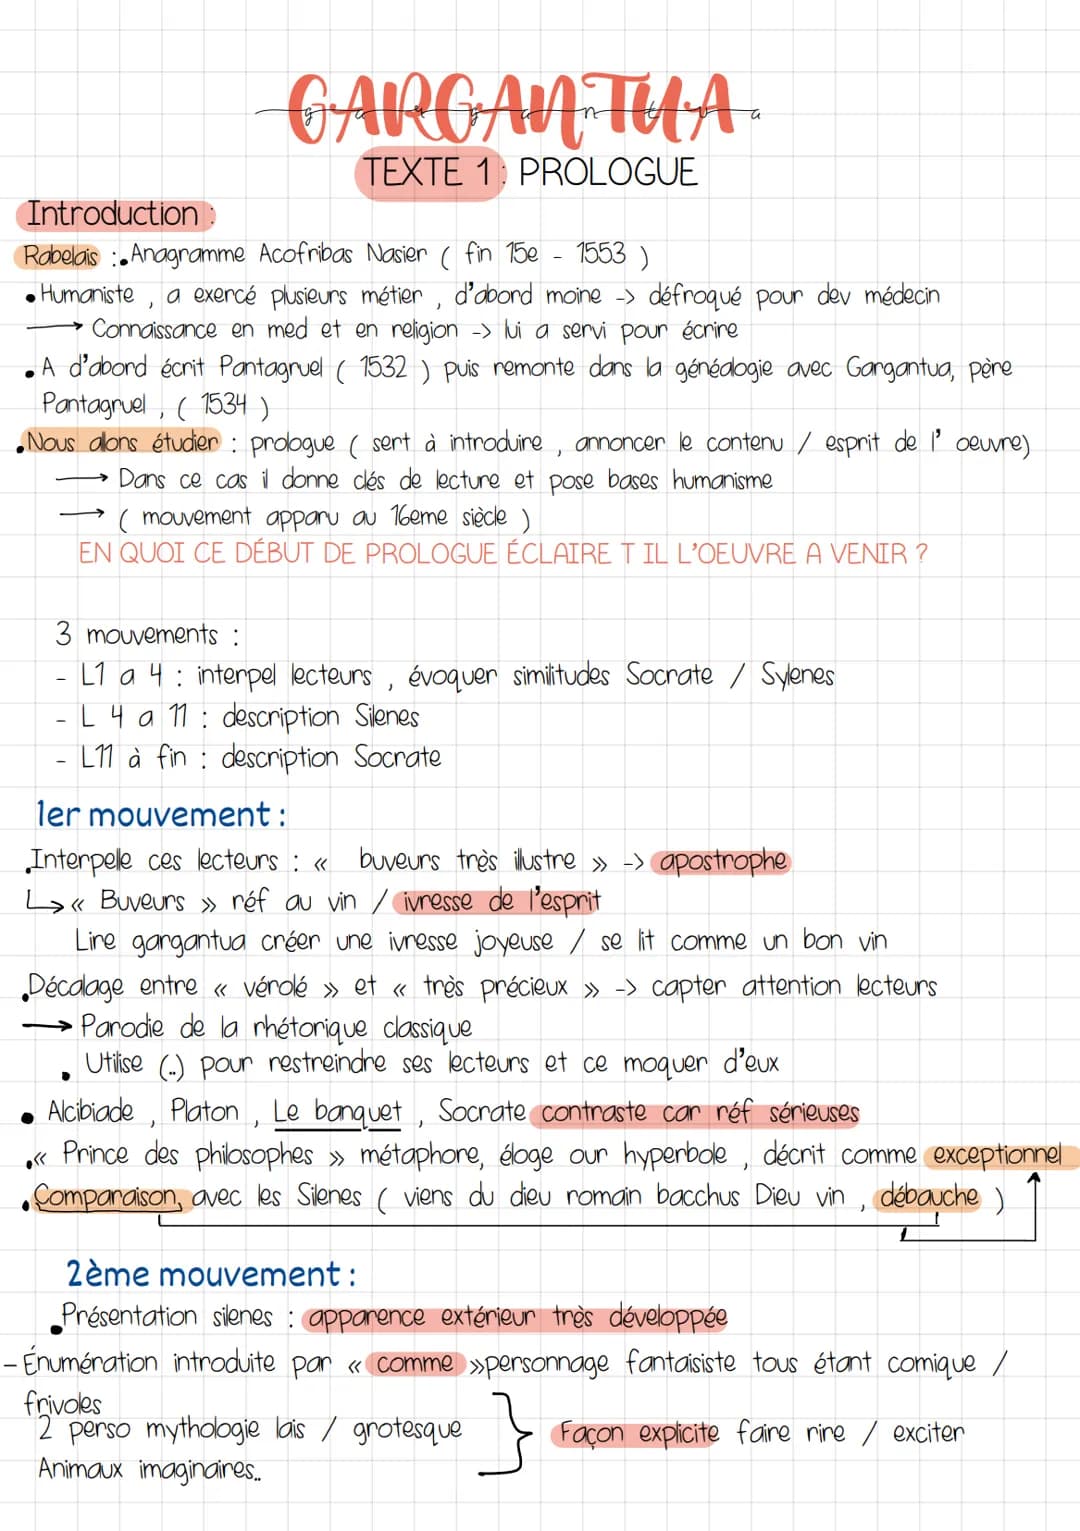 GARGANTUA
gargantua
TEXTE 1 : PROLOGUE
Introduction :
Rabelais : • Anagramme Acofribas Nasier ( fin 15e - 1553 )
• Humaniste , a exercé plusieurs métier , d'abord moine -> défroqué pour dev médecin
→ Connaissance en med et en religion -> lui a servi pour écrire
• A d'abord écrit Pantagruel ( 1532 ) puis remonte dans la généalogie avec Gargantua, père
Pantagruel , ( 1534 )
• Nous allons étudier : prologue ( sert à introduire , annoncer le contenu / esprit de l' oeuvre)
→ Dans ce cas il donne clés de lecture et pose bases humanisme
→ ( mouvement apparu au 16eme siècle )
EN QUOI CE DÉBUT DE PROLOGUE ÉCLAIRE T IL L'OEUVRE A VENIR ?
3 mouvements :
- L1 a 4 : interpel lecteurs , évoquer similitudes Socrate / Sylenes
- L 4 a 11 : description Silenes
- L11 à fin : description Socrate
1er mouvement :
• Interpelle ces lecteurs : « buveurs très illustre » -> apostrophe
↳ « Buveurs » réf au vin / ivresse de l'esprit
Lire gargantua créer une ivresse joyeuse / se lit comme un bon vin
• Décalage entre « vérolé » et « très précieux » -> capter attention lecteurs
→ Parodie de la rhétorique classique
• Utilise (..) pour restreindre ses lecteurs et ce moquer d'eux
• Alcibiade , Platon , Le banquet , Socrate contraste car réf sérieuses
• « Prince des philosophes » métaphore, éloge our hyperbole , décrit comme exceptionnel
• Comparaison, avec les Silenes ( viens du dieu romain bacchus Dieu vin , débauche )
2ème mouvement :
• Présentation silenes : apparence extérieur très développée
- Énumération introduite par « comme » personnage fantaisiste tous étant comique /
frivoles
2 perso mythologie lais / grotesque
Animaux imaginaires..
} Façon explicite faire rire / exciter